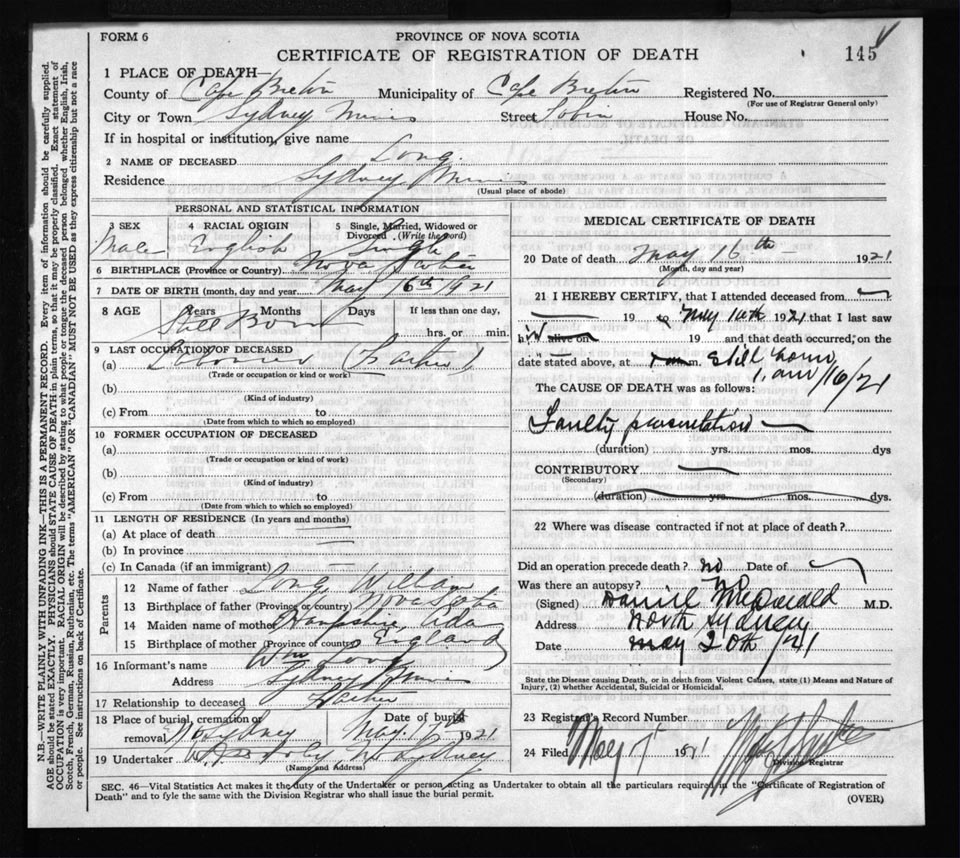 FORM 6
PROVINCE OF NOVA SCOTIA
CERTIFICATE OF REGISTRATION OF DEATH
145
1 PLACE OF DEATH—
County of Cape Breton Municipality of Cape Breton Registered No.
(For use of Registrar General only)
City or Town Sydney Mines Street Tobin House No.
If in hospital or institution, give name
2 NAME OF DECEASED Long.
Residence Sydney Mines
(Usual place of abode)
PERSONAL AND STATISTICAL INFORMATION
3 SEX 4 RACIAL ORIGIN 5 Single, Married, Widowed or Divorced (Write the word)
Male English Single
6 BIRTHPLACE (Province or Country) Nova Scotia
7 DATE OF BIRTH (month, day and year) May 16th 1921
8 AGE Years Months Days If less than one day,
Still Born hrs. or min.
9 LAST OCCUPATION OF DECEASED
(a) Laborer (Father)
(Trade or occupation or kind of work)
(b)
(Kind of industry)
(c) From to
(Date from which to which so employed)
10 FORMER OCCUPATION OF DECEASED
(a)
(Trade or occupation or kind of work)
(b)
(Kind of industry)
(c) From to
(Date from which to which so employed)
11 LENGTH OF RESIDENCE (In years and months)
(a) At place of death
(b) In province
(c) In Canada (if an immigrant)
Parents
12 Name of father Long, William
13 Birthplace of father (Province or country) Nova Scotia
14 Maiden name of mother Hampshire, Ada
15 Birthplace of mother (Province or country) England
16 Informant's name Wm Long
Address Sydney Mines
17 Relationship to deceased Father
18 Place of burial, cremation or removal N. Sydney Date of burial May 17th 1921
19 Undertaker N Sydney
(Name and Address)
MEDICAL CERTIFICATE OF DEATH
20 Date of death May 16th 1921
(Month, day and year)
21 I HEREBY CERTIFY, that I attended deceased from
19 to May 16th 1921 that I last saw
h alive on 19 and that death occurred, on the
date stated above, at m. Still born,
1. am /16/21
The CAUSE OF DEATH was as follows:
Faulty presentation
(duration) yrs. mos. dys
CONTRIBUTORY
(Secondary)
(duration) yrs. mos. dys.
22 Where was disease contracted if not at place of death?
Did an operation precede death? no Date of
Was there an autopsy? No
(Signed) Daniel McDonald M.D.
Address North Sydney
Date May 20th /21
State the Disease causing Death, or in death from Violent Causes, state (1) Means and Nature of Injury, (2) whether Accidental, Suicidal or Homicidal.
23 Registrar's Record Number
24 Filed May 1921
Division Registrar
SEC. 46—Vital Statistics Act makes it the duty of the Undertaker or person acting as Undertaker to obtain all the particulars required in the "Certificate of Registration of
Death" and to fyle the same with the Division Registrar who shall issue the burial permit.
(OVER)
N.B.—WRITE PLAINLY WITH UNFADING INK—THIS IS A PERMANENT RECORD. Every item of information should be carefully supplied.
AGE should be stated EXACTLY. PHYSICIANS should STATE CAUSE OF DEATH in plain terms, so that it may be properly classified. Exact statement of
OCCUPATION is very important. RACIAL ORIGIN will be described by stating to what people or tongue the deceased person belonged whether English, Irish,
Scotch, French, German, Russian, Ruthenian, etc. The terms "AMERICAN" OR "CANADIAN" MUST NOT BE USED as they express citizenship but not a race
or people. See instructions on back of Certificate.